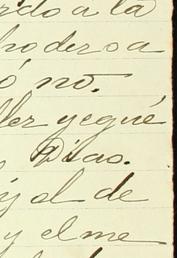 rdo a la
hoderosa
ó no.
ller yegué
Dias.
y el de
y el me